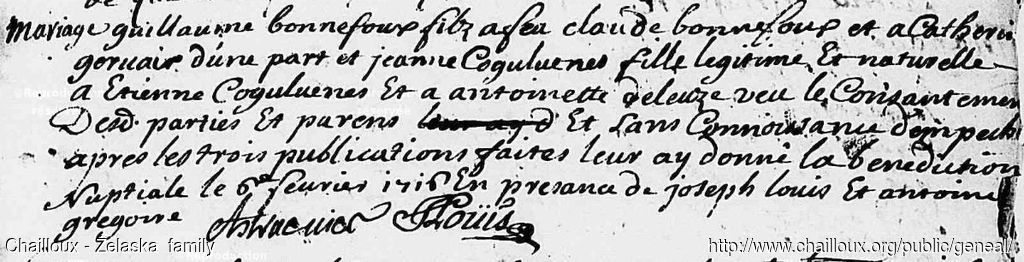 Mariage guillaume bonnefoux filz a feu claude bonnefoux et a Catherin
gervais d'une part et jeanne Coguluenes fille legitime Et naturelle
a Etienne Coguluenes Et a antoinette deleuze veu le Consantemen
Desd. parties Et parens Et sans Connoissance dempech
apres les trois publications faites leur ay donné la benediction
Nuptiale le 6e fevrier 1716 En presance de joseph louis Et antoine
gregoire Louïs
Chailloux - Zelaska family http://www.chailloux.org/public/geneal/